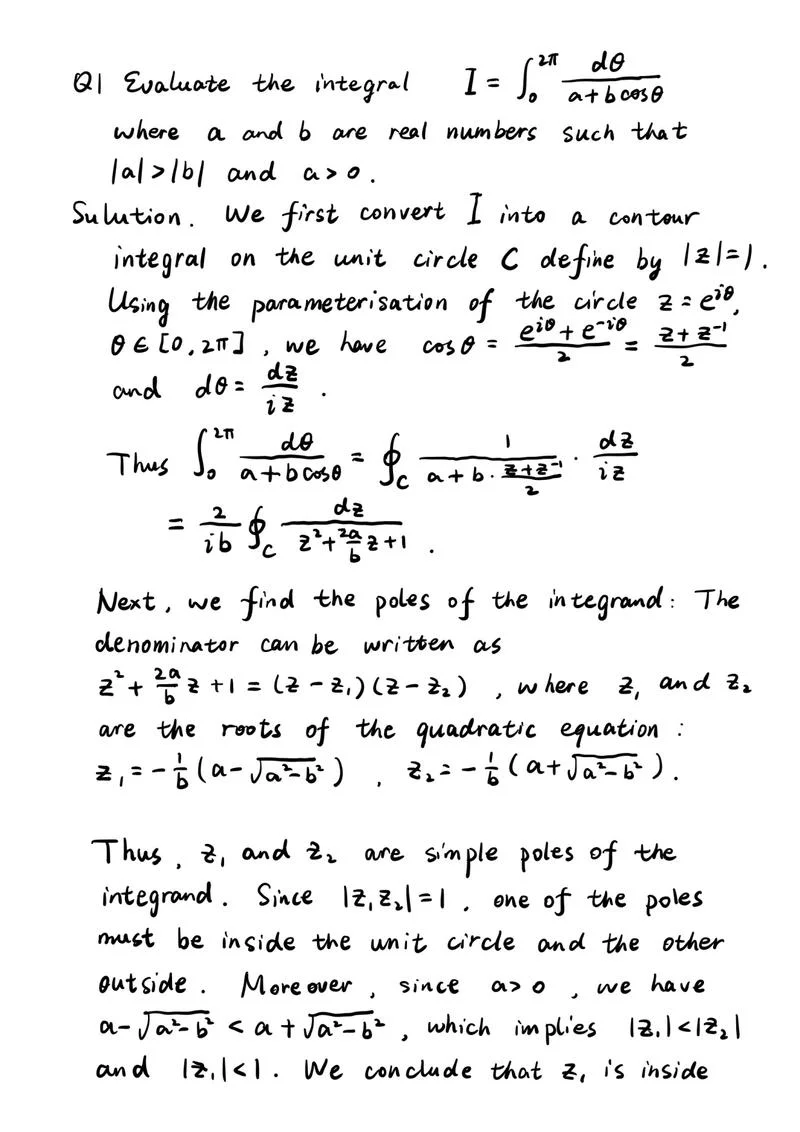 Q1 Evaluate the integral I = ∫₀^{2π} dθ/(a+b cosθ)
where a and b are real numbers such that
|a|>|b| and a>0.
Sulution. We first convert I into a contour
integral on the unit circle C define by |z|=1.
Using the parameterisation of the circle z=e^{iθ},
θ∈[0,2π], we have cosθ = (e^{iθ}+e^{-iθ})/2 = (z+z^{-1})/2
and dθ = dz/(iz).
Thus ∫₀^{2π} dθ/(a+b cosθ) = ∮_C 1/(a+b·(z+z^{-1})/2) · dz/(iz)
= 2/(ib) ∮_C dz/(z²+(2a/b)z+1).
Next, we find the poles of the integrand: The
denominator can be written as
z²+(2a/b)z+1=(z-z₁)(z-z₂), where z₁ and z₂
are the roots of the quadratic equation:
z₁=-(1/b)(a-√(a²-b²)), z₂=-(1/b)(a+√(a²-b²)).
Thus, z₁ and z₂ are simple poles of the
integrand. Since |z₁z₂|=1, one of the poles
must be inside the unit circle and the other
outside. Moreover, since a>0, we have
a-√(a²-b²) < a+√(a²-b²), which implies |z₁|<|z₂|
and |z₁|<1. We conclude that z₁ is inside